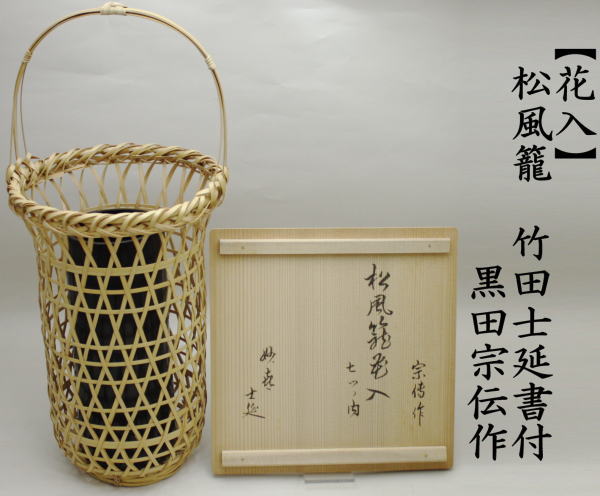 【花入】
松風籠 竹田士延書付
黒田宗伝作
宗傳作
松風籠花入
七ツノ内
妙喜
士延